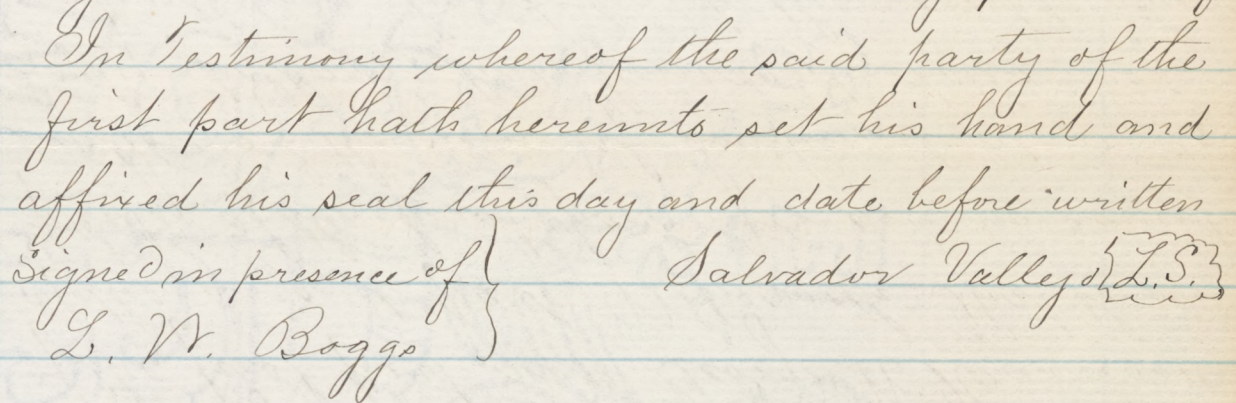 In Testimony whereof the said party of the
first part hath hereunto set his hand and
affixed his seal this day and date before written
Signed in presence of } Salvador Vallejo {L.S.}
L. W. Boggs